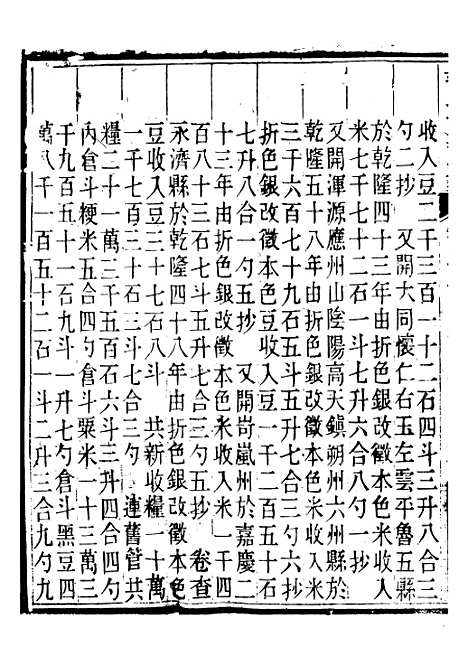 收入豆二千三百一十二石四斗三升八合三
勺二抄　又開大同懷仁右玉左雲平魯五縣
於乾隆四十三年由折色銀改徵本色米收入
米七千七十二石一斗七升六合八勺一抄
又開渾源應州山陰陽高天鎮朔州六州縣於
乾隆五十八年由折色銀改徵本色米收入米
三千六百七十九石五斗五升七合三勺六抄
折色銀改徵本色豆收入豆一千二百六石二斗
七升八合一勺五抄　又開岢嵐州於嘉慶二
十三年由折色銀改徵本色米收入米一千四
百八十三石七斗五升七合九勺五抄　卷查
永濟縣於乾隆四十八年由折色銀改徵本色
豆收入豆三十七石八斗　共新收糧一十萬
一千七百三十石三斗七合三勺　連舊管共
糧二十一萬三千五百石六斗三升四合四勺
內倉斗粳米五合四勺倉斗粟米一十三萬三
千九百五十一石九斗一升七勺倉斗黑豆四
萬八千一百五十二石一斗二升三合九勺九